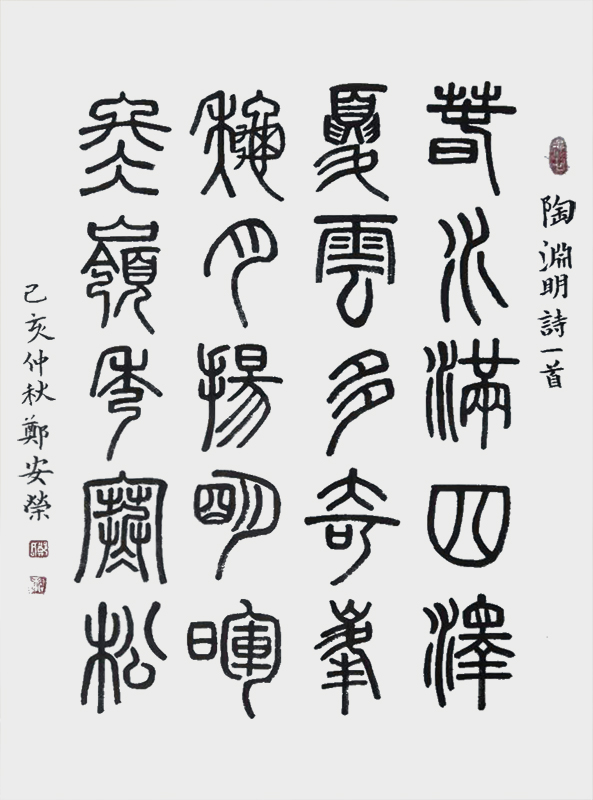 陶淵明詩一首
春水滿四澤
夏雲多奇峯
秋月揚明暉
冬嶺秀寒松
己亥仲秋鄭安榮